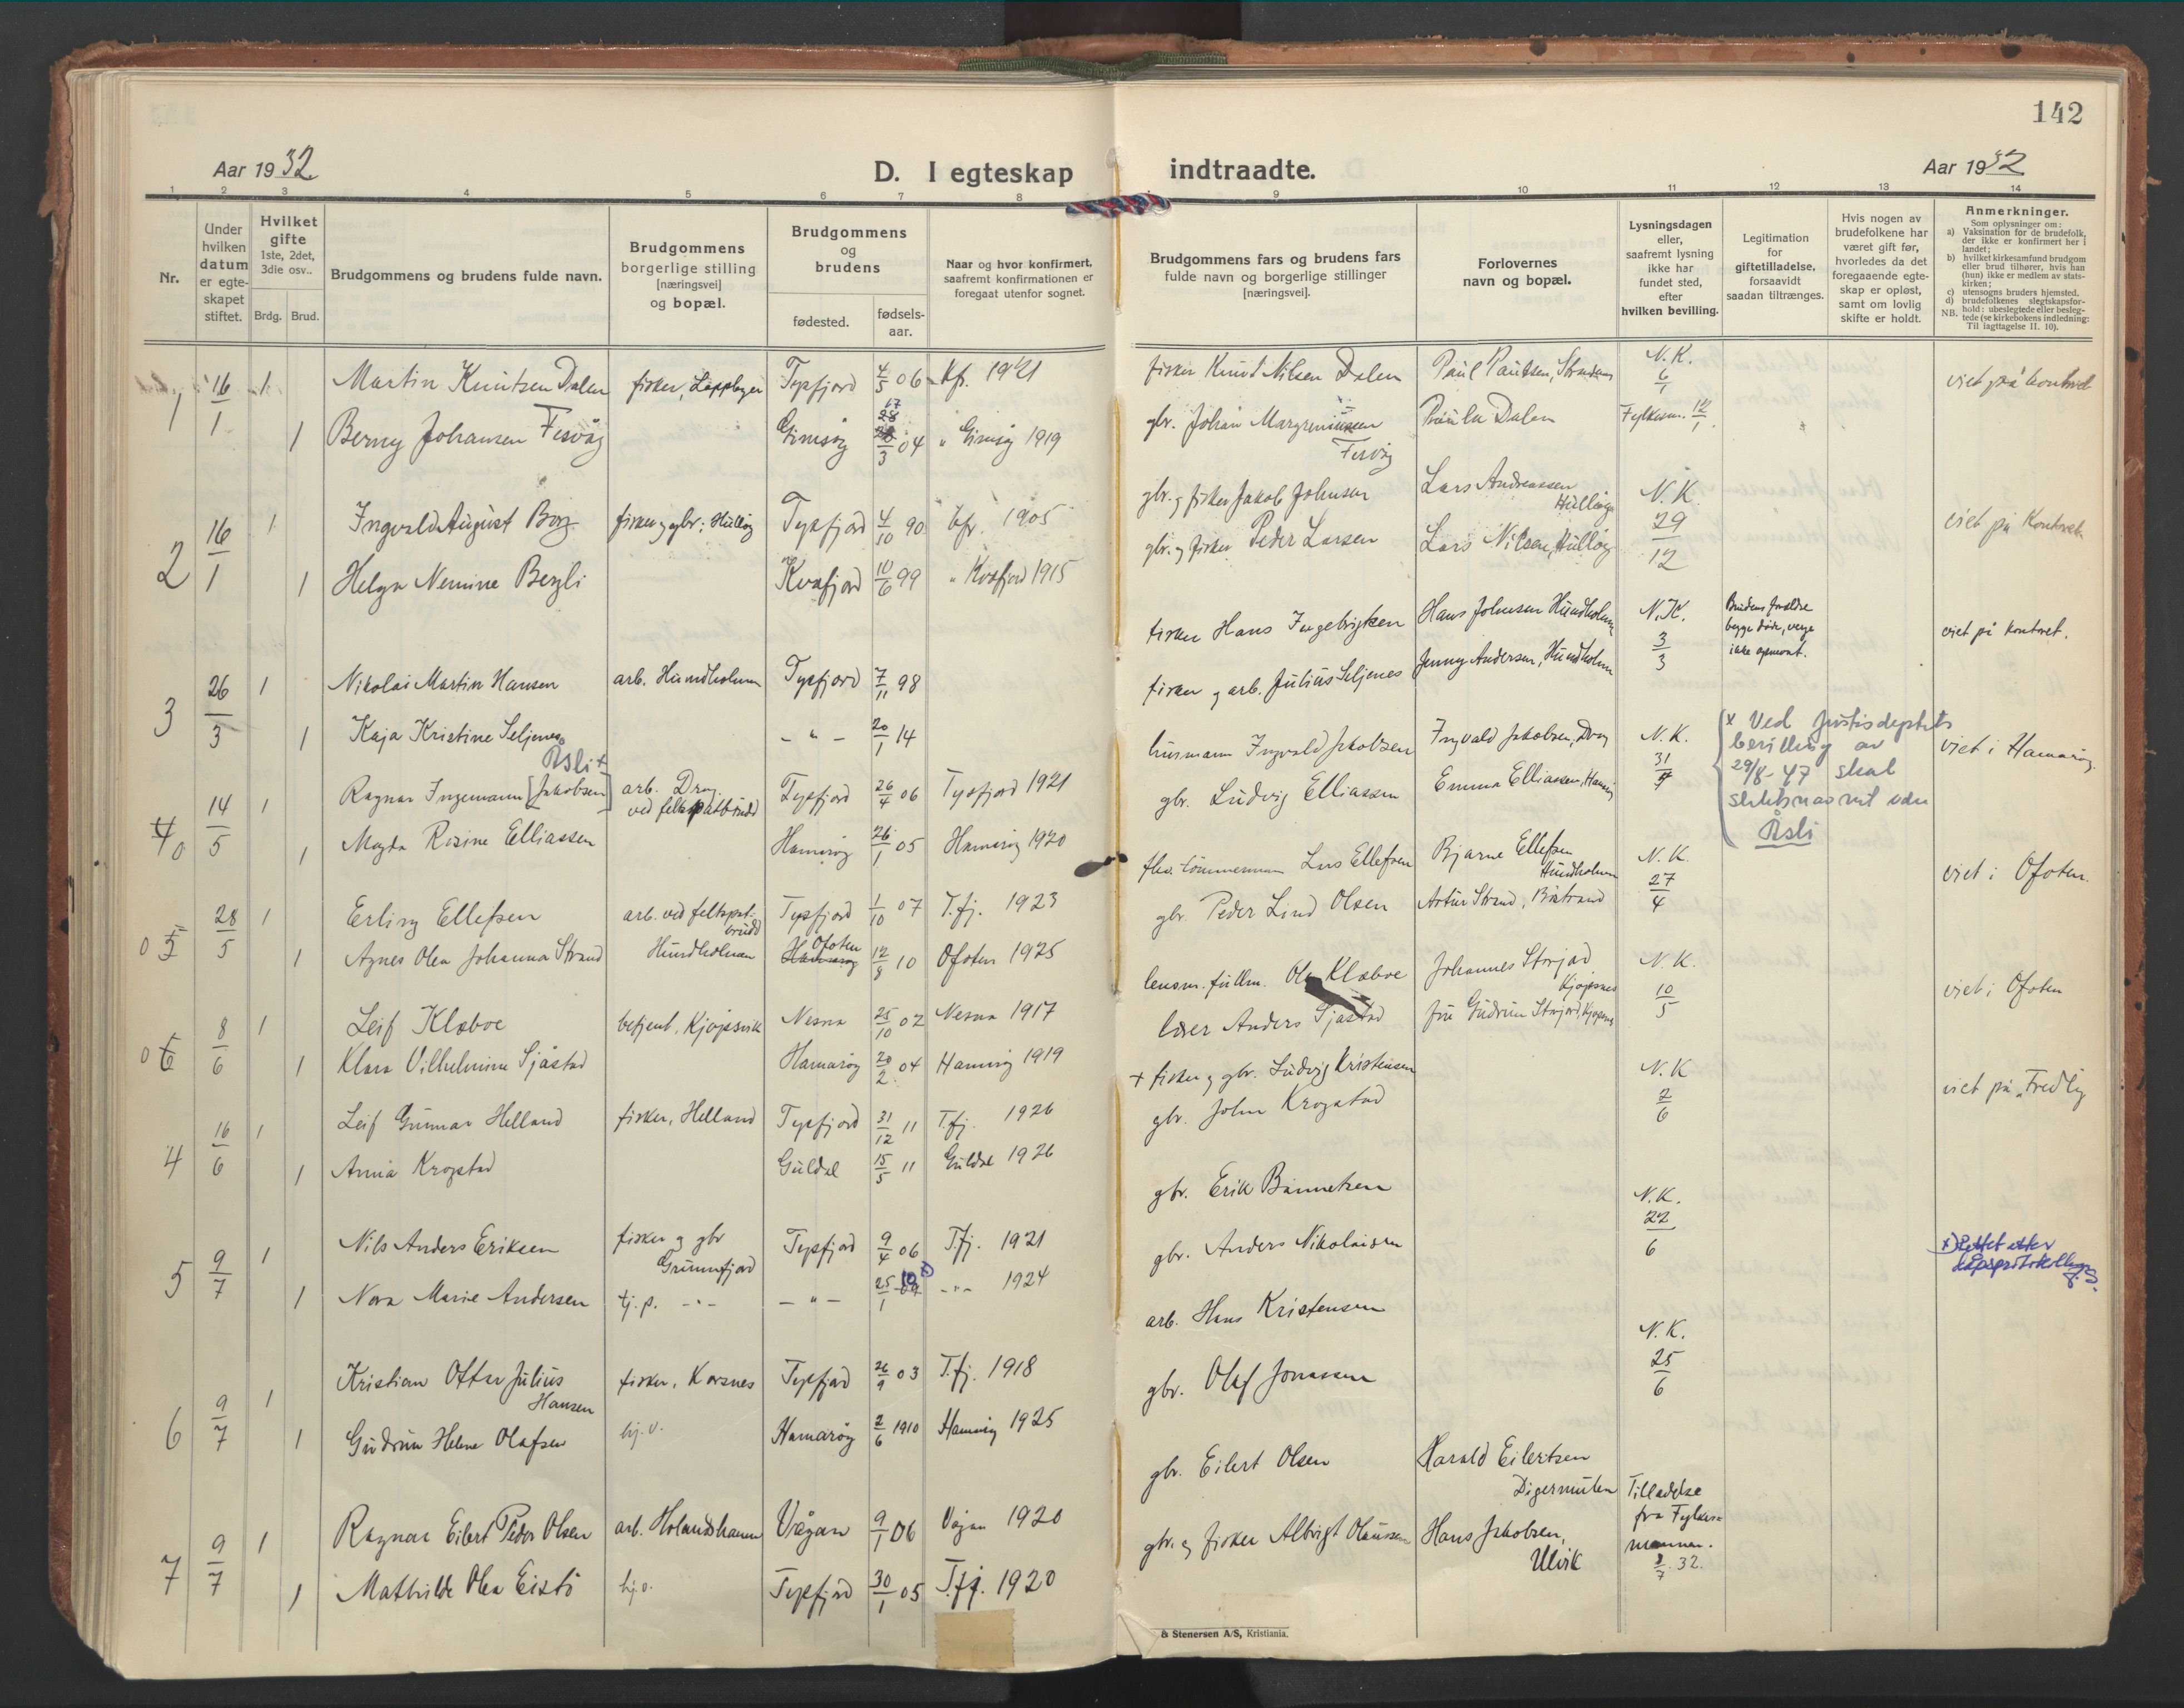 142
Aar 1932.
D. I egteskap indtraadte.
Aar 1932
1 2 3 4 5 6 7 8 9 10 11 12 13 14
Nr.
Under hvilken datum er egte-skapet stiftet.
Hvilket gifte 1ste, 2det, 3die osv..
Brdg. Brud.
Brudgommens og brudens fulde navn.
Brudgommens borgerlige stilling [næringsvei] og bopæl.
Brudgommens og brudens
fødested. fødsels-aar.
Naar og hvor konfirmert, saafremt konfirmationen er foregaat utenfor sognet.
Brudgommens fars og brudens fars fulde navn og borgerlige stillinger [næringsvei].
Forlovernes navn og bopæl.
Lysningsdagen eller, saafremt lysning ikke har fundet sted, efter hvilken bevilling.
Legitimation for giftetilladelse, forsaavidt saadan tiltrænges.
Hvis nogen av brudefolkene har været gift før, hvorledes da det foregaaende egte-skap er opløst, samt om lovlig skifte er holdt.
Anmerkninger.
Som oplysninger om:
a) Vaksination for de brudefolk, der ikke er konfirmert her i landet;
b) hvilket kirkesamfund brudgom eller brud tilhører, hvis han (hun) ikke er medlem av stats-kirken;
c) utensogns bruders hjemsted.
d) brudefolkenes slegtskapsfor-hold: ubeslegtede eller besleg-tede (se kirkebokens indledning:
NB. Til iagttagelse II. 10).
1 16/1 1 Martin Knutsen Dalen fisker, Leppbogen Tysfjord 4/5 06 kfr. 1921 fisker Knut Nilsen Dalen Paul Paulsen, N.K. 6/1 viet på kontoret
1 Berny Johansen Fisvåg Gimsøy 17 28/3 04 " Gimsøy 1919 gbr. Johan Margreniussen Fisvåg Paula Dalen Fylkesm. 12/1.
2 16/1 1 Ingvald August Borg fisker og gbr. Hulløy Tysfjord 4/10 90 kfr. 1905 gbr. og fisker Jakob Johnsen Lars Andreassen Hulløy N.K. 29/12 viet på Kontoret
1 Helga Nemine Bergli Kvæfjord 10/6 99 " Kvæfjord 1915 gbr. og fisker Peder Larsen Lars Nilsen, Hulløy
3 26/3 1 Nikolai Martin Hansen arb. Hundholmen Tysfjord 7/11 98 fisker Hans Ingebrigtsen Hans Johnsen Hundholmen N.K. 3/3 Brudens forældre begge døde, verge ikke opnevnt. viet på kontoret.
1 Kaja Kristine Seljenes - " - 20/1 14 fisker og arb. Julius Seljenes Jenny Andersen, Hundholmen
Åsli +
4 0 14/5 1 Ragnar Ingemann [Jakobsen] arb. Drag. ved feltspatbrudd Tysfjord 26/4 06 Tysfjord 1921 husmann Ingvald Jakobsen Ingvald Jakobsen, Drag N.K. 31/ viet i Hamarøy.
x Ved Justisdeptets bevilling av 29/8-47 skal slektsnavnet være Åsli
1 Magda Rosine Elliassen Hamarøy 26/1 05 Hamarøy 1920 gbr. Ludvig Elliassen Emma Elliassen, Hamarøy
0 5 28/5 1 Erling Ellefsen arb. ved feltspat-brudd Hundholmen Tysfjord 1/10 07 T.fj. 1923 fhv. tømmermann Lars Ellefsen Bjarne Ellefsen Hundholmen N.K. 27/4 viet i Ofoten.
1 Agnes Olea Johanna Strand Ofoten Hamarøy 12/8 10 Ofoten 1925 gbr. Peder Lind Olsen Artur Strand,
0 6 8/6 1 Leif Klæboe betjent, Kjøpsvik Nesna 25/10 02 Nesna 1917 lensm. fullm. Ole Klæboe Johannes Storjord Kjøpsnes N.K. 10/5 viet i Ofoten
1 Klara Vilhelmine Sjåstad Hamarøy 20/2 04 Hamarøy 1919 lærer Anders Sjåstad fru Gudrun Storjord, Kjøpsnes
4 16/6 1 Leif Gunnar Helland fisker, Helland Tysfjord 31/12 11 T.fj. 1926 + fisker og gbr. Ludvig Kristensen N.K 2/6 viet på "Fredly
1 Anna Krogstad Guldal 15/5 11 Guldal 1926 gbr. John Krogstad
5 9/7 1 Nils Anders Eriksen fisker og gbr Grunnfjord Tysfjord 9/4 06 T.fj. 1921 gbr. Erik Bannetsen N.K. 22/6
1 Nora Marie Andersen tj.p. - " - - " - 25/1 10 x) - " - 1924 gbr. Anders Nikolaisen x) Rettet etter dåpsprotokollen
6 9/7 1 Kristian Otter Julius Hansen fisker, Korsnes Tysfjord 26/9 03 T.fj. 1918 arb. Hans Kristensen N.K. 25/6
1 Gudrun Helene Olafsen hj.v. Hamarøy 2/6 1910 Hamarøy 1925 gbr. Olaf Jonassen
7 9/7 1 Ragnar Eilert Peder Olsen arb. Holandshamn Vågan 9/1 06 Vågan 1920 gbr. Eilert Olsen Harald Eilertsen Digermulen Tilladelse fra Fylkes-mannen. 2/7 32.
1 Mathilde Olea Eistø hj.v. Tysfjord 30/1 05 T.fj. 1920 gbr. og fisker Albrigt Olaussen Hans Jakobsen, Ulvik
& Stenersen A/S, Kristiania.